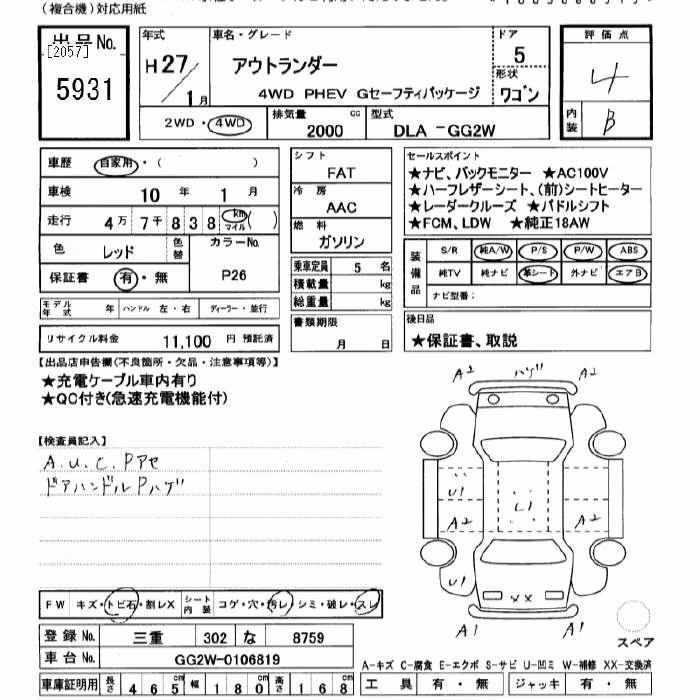 (複合機)対応用紙
出品No.
[2057]
5931
年式
H27/1月
車名・グレード
アウトランダー
4WD PHEV Gセーフティパッケージ
ドア
5
形状
ワゴン
評価点
4
内装
B
2WD・4WD
排気量
2000 cc
型式
DLA-GG2W
車歴
自家用・( )
車検
10年 1月
走行
4万7千838 km マイル ( )
色
レッド
色替
カラーNo.
P26
保証書
有・無
モデル年式 年
ハンドル 左・右
ディーラー・並行
リサイクル料金 11,100 円 預託済
シフト
FAT
冷房
AAC
燃料
ガソリン
乗車定員 5 名
積載量 kg
総重量 kg
書類期限
月 日
セールスポイント
★ナビ、バックモニター ★AC100V
★ハーフレザーシート、(前)シートヒーター
★レーダークルーズ ★パドルシフト
★FCM、LDW ★純正18AW
装備品
S/R 純A/W P/S P/W ABS
純TV 純ナビ 革シート 外ナビ エアB
ナビ型番:
後日品
★保証書、取説
【出品店申告欄(不良箇所・欠品・注意事項等)】
★充電ケーブル車内有り
★QC付き(急速充電機能付)
【検査員記入】
A.U.C.Pアセ
ドアハンドルPハゲ
A2 ハゲ A2
U1 A2 U1 L1 A2
XX
A1 A1
スペア
FW キズ・トビ石・割レX
シート内装 コゲ・穴・汚レ・シミ・破レ・スレ
登録No. 三重 302 な 8759
車台No. GG2W-0106819
車庫証明用 長さ 465cm 幅 180cm 高さ 168cm
A-キズ C-腐食 E-エクボ S-サビ U-凹ミ W-補修 XX-交換済
工具 有・無 ジャッキ 有・無